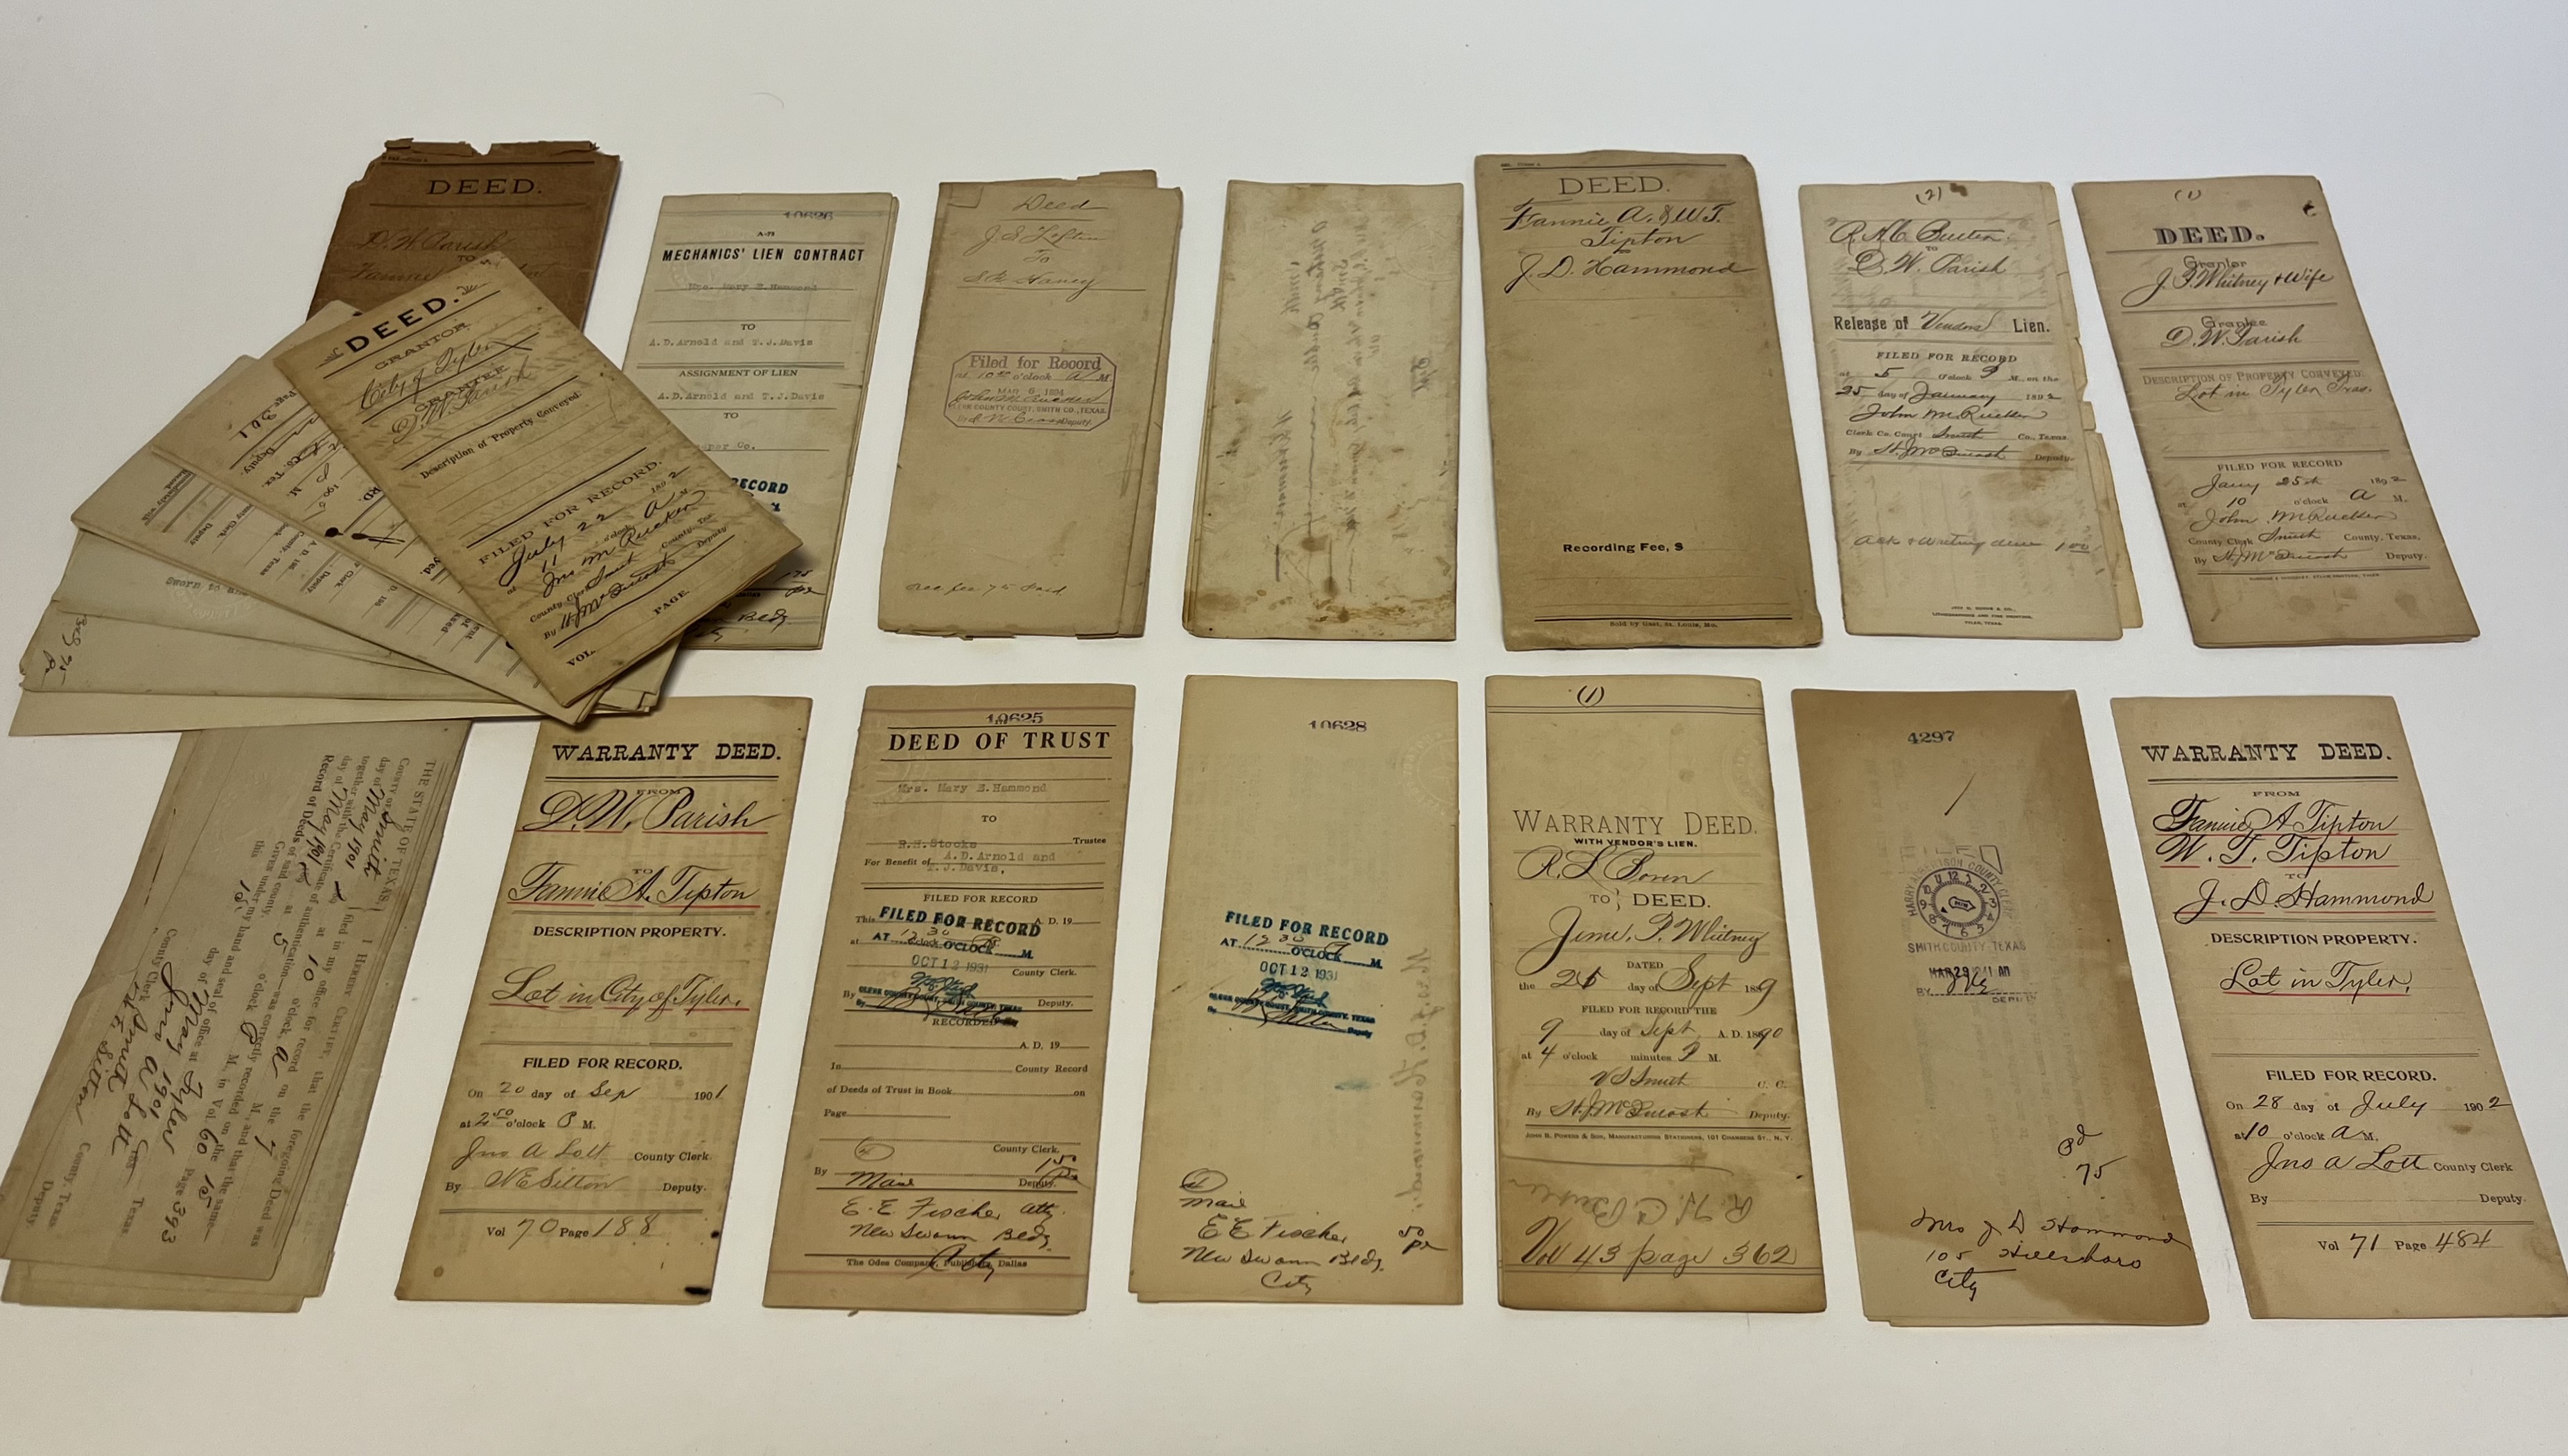 DEED.
D. W. Parish
TO
Fannie
DEED.
GRANTOR
City of Tyler
GRANTEE
D. W. Parish
Description of Property Conveyed.
FILED FOR RECORD.
July 22 1892
at 11 o'clock A M.
Jno M Rucker
County Clerk Smith County, Tex
By H. J. McIntosh Deputy
VOL. PAGE
Page 361
Deputy.
Sworn to and
Reg 75
pd
10626
A-75
MECHANICS' LIEN CONTRACT
Mrs. Mary E. Hammond
TO
A.D.Arnold and T.J.Davis
ASSIGNMENT OF LIEN
A.D.Arnold and T.J.Davis
TO
per Co.
RECORD
175
pd
Bldg
City
Deed
J S Loftin
To
S. R. Haney
Filed for Record
at 10 o'clock A M.
MAR 6 1894
John M Rucker
CLERK COUNTY COURT, SMITH CO., TEXAS.
Deputy.
Rec fee 75 Paid
DEED.
Fannie A. & W. T.
Tipton
J. D. Hammond
Recording Fee, $
Sold by Gast, St. Louis, Mo.
(2)
R. H. C. Buster
TO
D. W. Parish
Release of Vendors Lien.
FILED FOR RECORD
at 5 o'clock P M., on the
25 day of January 1892
John M Rucker
Clerk Co. Court Smith Co., Texas.
By H. J. McIntosh Deputy.
Ack & Writing due 1.00
TYLER, TEXAS.
(1)
DEED.
Grantor
J. P. Whitney & Wife
Grantee
D. W. Parish
DESCRIPTION OF PROPERTY CONVEYED:
Lot in Tyler Texas.
FILED FOR RECORD
Jany 25th 1892
at 10 o'clock A M.
John M Rucker
County Clerk Smith County, Texas.
By H. J. McIntosh Deputy.
THE STATE OF TEXAS,
County of Smith
I HEREBY CERTIFY, that the foregoing Deed was
day of May 1901 filed in my office for record on the 7
together with the Certificate of authentication—was correctly recorded on the 15
day of May 1901 at 10 o'clock A M., and that the same
Record of Deeds of said county, at 5 o'clock P M., in Vol 60 Page 393
Given under my hand and seal of office at Tyler Texas
this 15 day of May 1901
Jno A Lott
County Clerk Smith County, Texas
W E Sitton Deputy
WARRANTY DEED.
FROM
D. W. Parish
TO
Fannie A. Tipton
DESCRIPTION PROPERTY.
Lot in City of Tyler.
FILED FOR RECORD.
On 20 day of Sep 1901
at 2 50 o'clock P M.
Jno A Lott County Clerk.
By W E Sitton Deputy.
Vol 70 Page 188
10625
DEED OF TRUST
Mrs. Mary E. Hammond
TO
R.H.Stocks Trustee
For Benefit of A.D.Arnold and
T.J.Davis,
FILED FOR RECORD
This A. D. 19
FILED FOR RECORD
AT 12 30 O'CLOCK P M.
OCT 12 1931
County Clerk.
CLERK COUNTY COURT, SMITH COUNTY, TEXAS
By Deputy.
RECORDED
A. D. 19
In County Record
of Deeds of Trust in Book on
Page
County Clerk.
150
By Deputy.
Mail
E. E. Fischer Atty.
New Swann Bldg.
City
The Odee Company, Publishers, Dallas
10628
FILED FOR RECORD
AT 12 30 P O'CLOCK M.
OCT 12 1931
CLERK COUNTY COURT, SMITH COUNTY, TEXAS
By Deputy
Mail
E E Fischer
New Swann Bldg.
City
50
pd
(1)
WARRANTY DEED.
WITH VENDOR'S LIEN.
R. L. Boren
TO } DEED.
Jime. P. Whitney
DATED
the 25 day of Sept 1889
FILED FOR RECORD THE
9 day of Sept A. D. 1890
at 4 o'clock minutes P M.
V S Smith C. C.
By H. J. McIntosh Deputy.
JOHN B. POWERS & SON, MANUFACTURING STATIONERS, 101 CHAMBERS ST., N. Y.
Vol 43 page 362
4297
FILED
COUNTY CLERK
12 1 2 3 4 5 6 7 8 9
SMITH COUNTY, TEXAS
MAR 29 11 AM
BY DEPUTY
Pd
75
Mrs J D Hammond
105 Hillsboro
City
WARRANTY DEED.
FROM
Fannie A Tipton
W. T. Tipton
TO
J. D Hammond
DESCRIPTION PROPERTY.
Lot in Tyler,
FILED FOR RECORD.
On 28 day of July 1902
at 10 o'clock A M.
Jno A Lott County Clerk
By Deputy.
Vol 71 Page 484